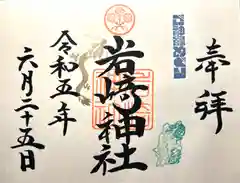 奉拝
岩崎神社
令和五年
六月二十五日